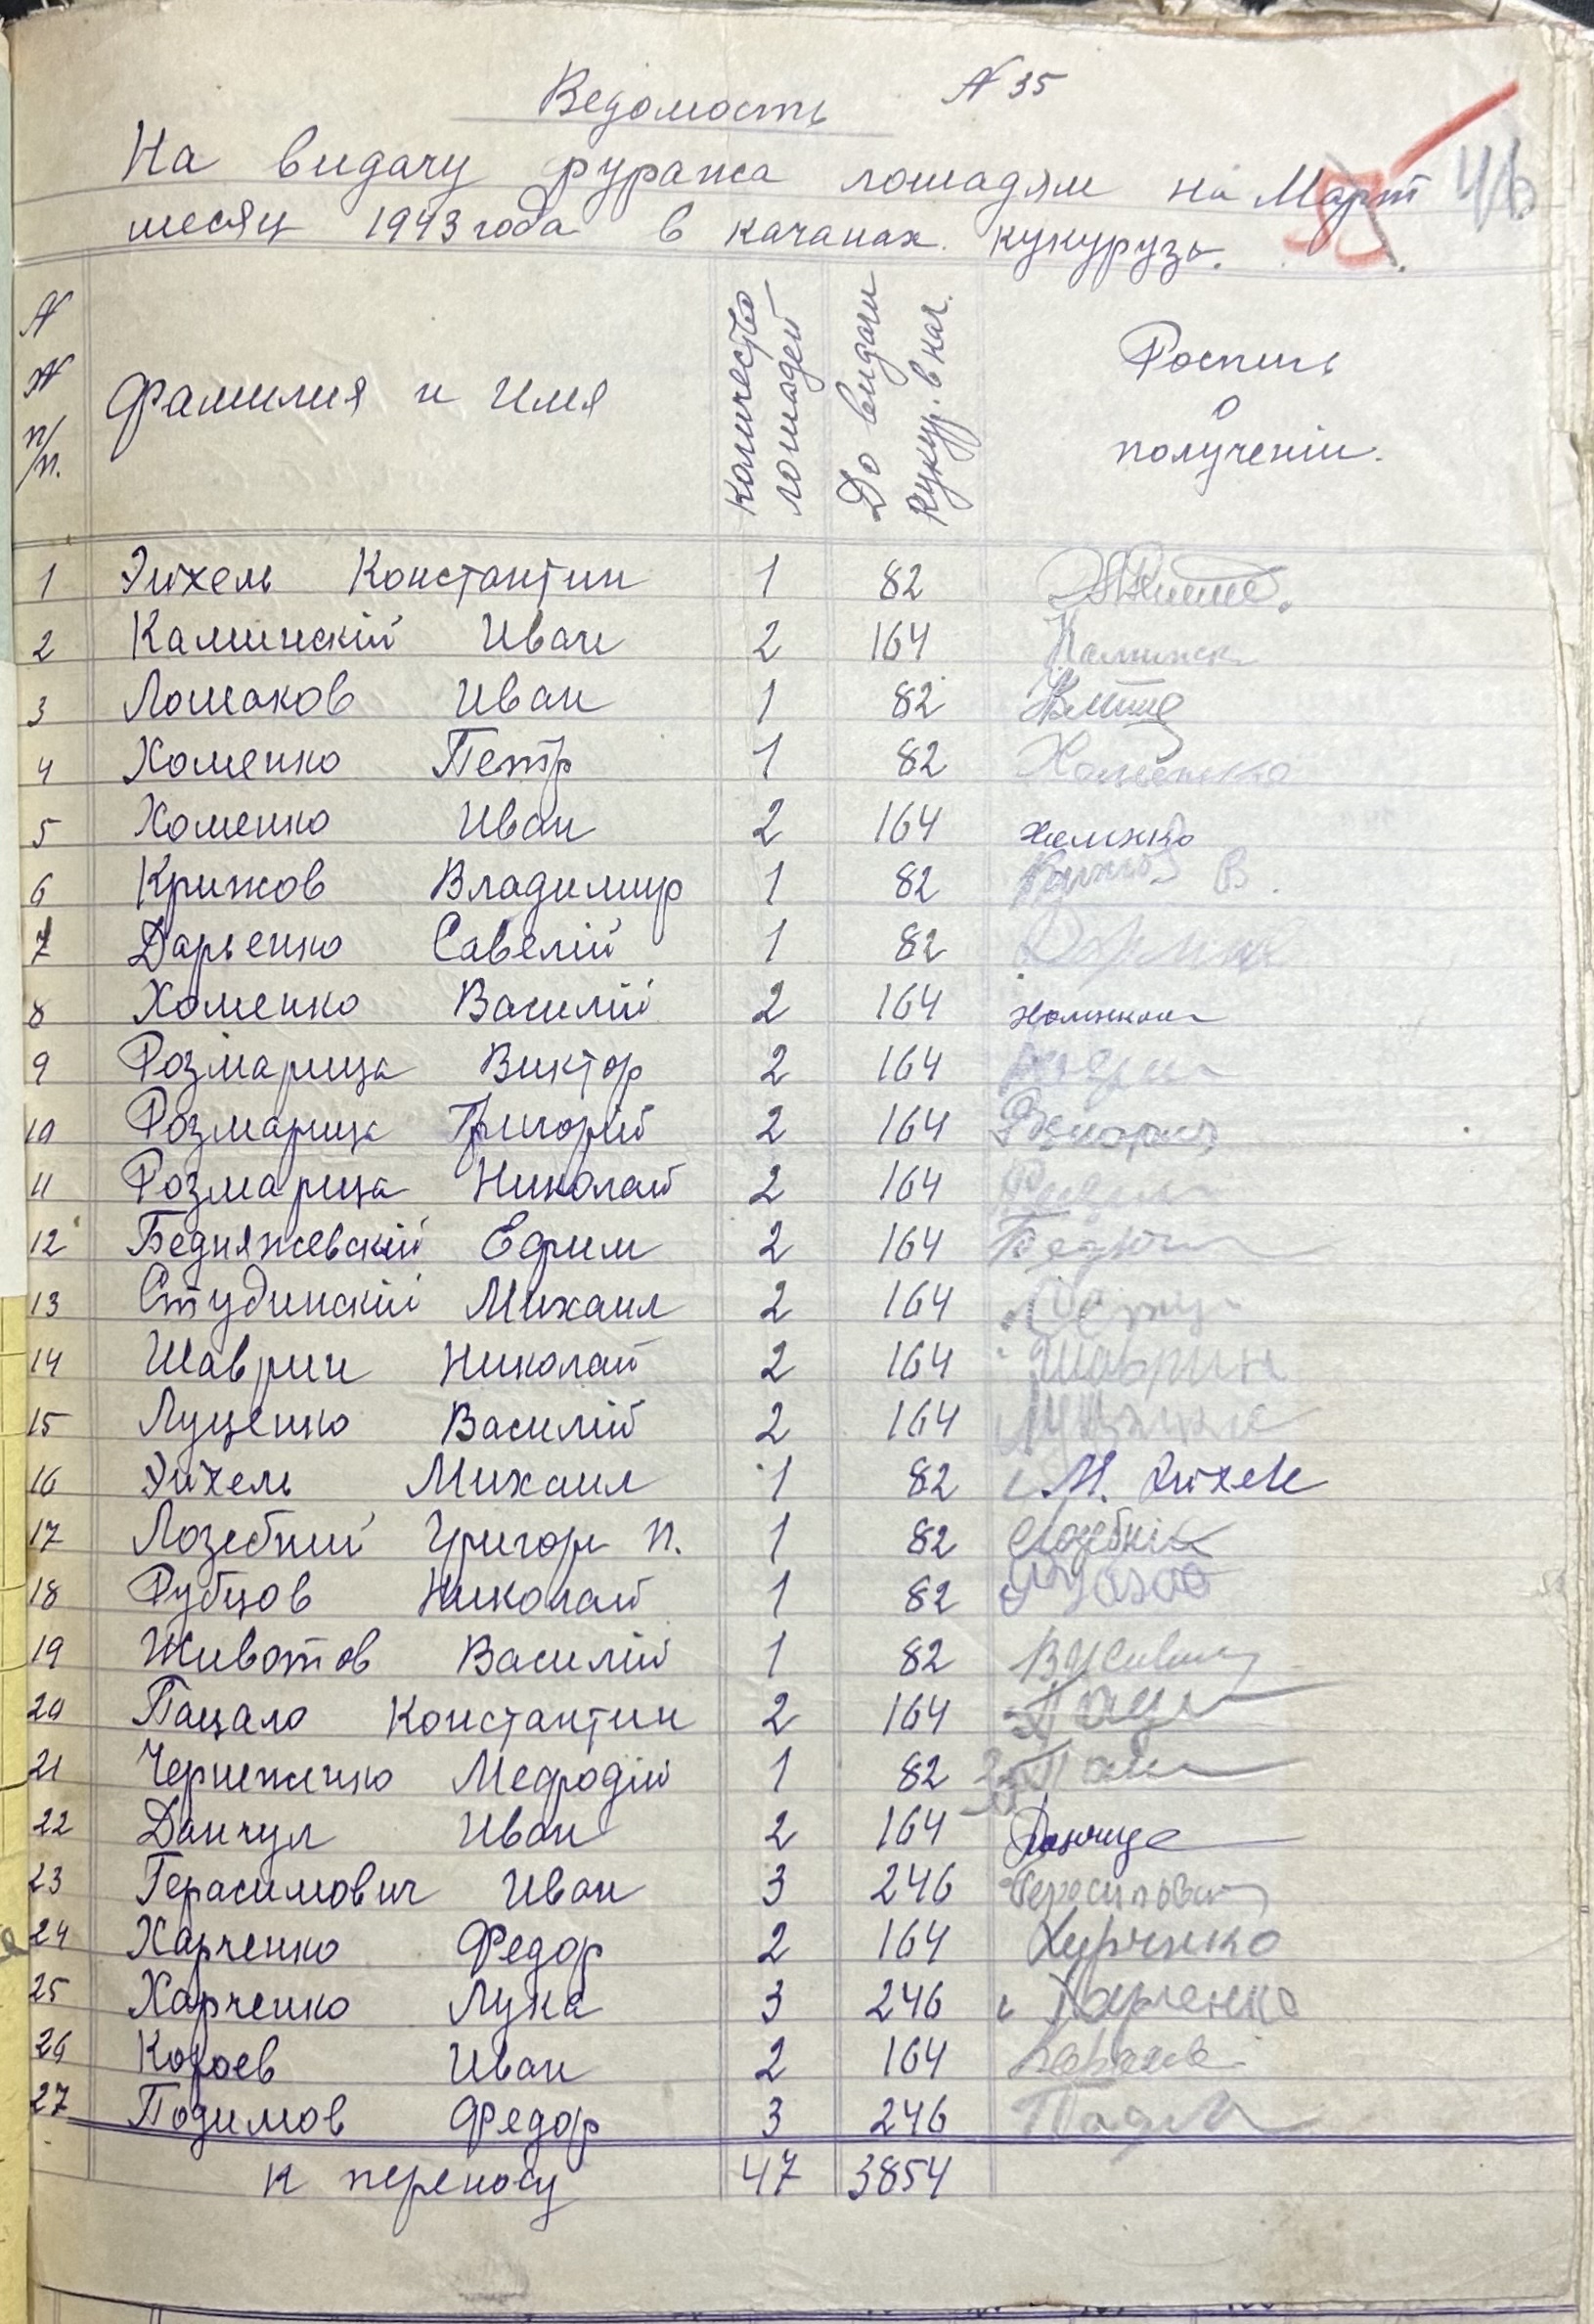 Ведомость N 35
На видачу фуража лошадям на Март 46
месяц 1943 года в качанах кукурузы.
N N п/п. Фамилия и Имя Количество лошадей До видачи кукур. в кач. Роспись о получении.
1 Эйхель Константин 1 82
2 Каминскій Иван 2 164 Каминск
3 Ломаков Иван 1 82
4 Хоменко Петр 1 82 Хоменко
5 Хоменко Иван 2 164 хомжко
6 Крижов Владимир 1 82 Крижов В.
7 Дарьенко Савелій 1 82
8 Хоменко Василій 2 164
9 Розмарица Виктор 2 164
10 Розмарица Григорій 2 164
11 Розмарица Николай 2 164
12 Бедняжевскій Ефим 2 164
13 Студинскій Михаил 2 164
14 Шаврин Николай 2 164 Шаврин
15 Луценко Василій 2 164
16 Эйхель Михаил 1 82 М. Эйхель
17 Лозебний Григори П. 1 82 Лозебній
18 Рубцов Николай 1 82
19 Животов Василій 1 82
20 Пацало Константин 2 164 Паца
21 Черниженко Мефодій 1 82
22 Данчул Иван 2 164
23 Герасимович Иван 3 246
24 Харченко Федор 2 164 Хурченко
25 Харченко Лука 3 246 Харченко
26 Короев Иван 2 164
27 Подимов Федор 3 246
К переносу 47 3854